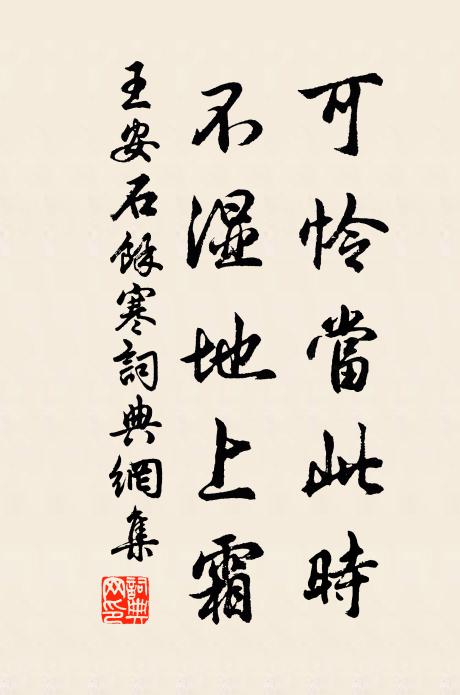 可怜當此時
不湿地上霜
王安石餘寒詞典網集
詞典網印